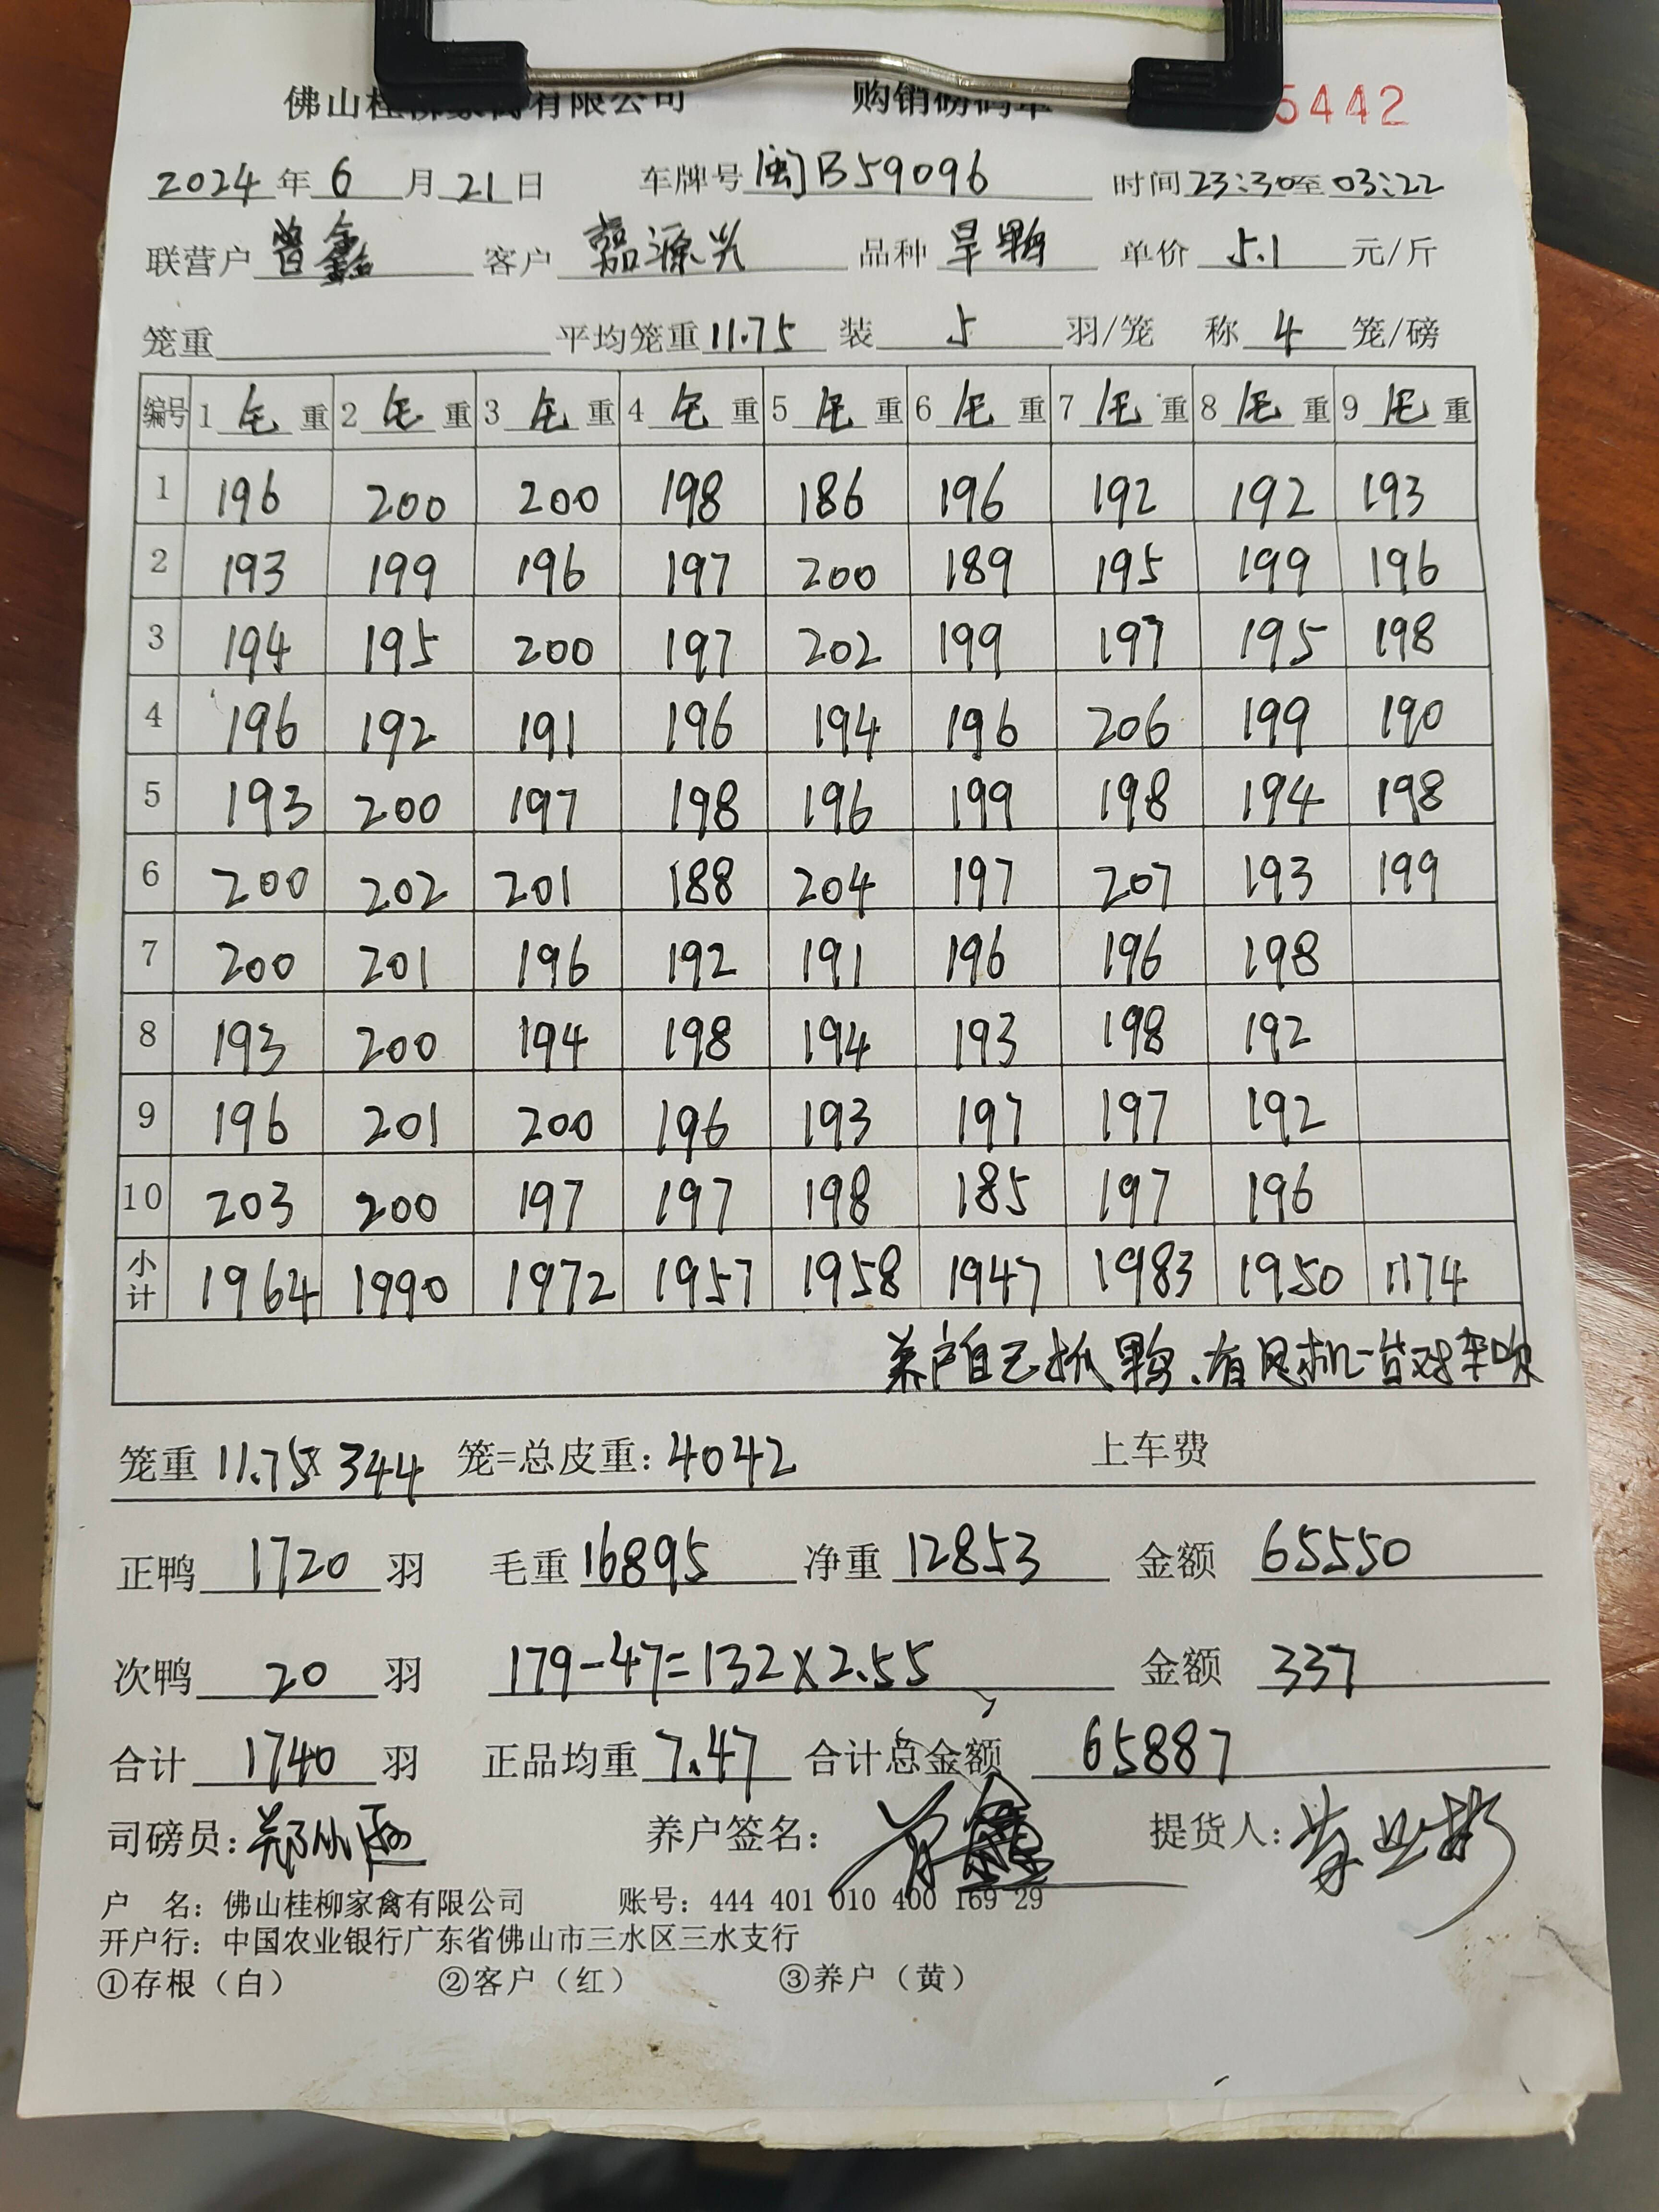 佛山桂柳家禽有限公司 购销磅码单 5442
2024年6月21日 车牌号闽B59096 时间23:30至03:22
联营户曾鑫 客户 源兴 品种旱鸭 单价5.1元/斤
笼重 平均笼重11.75 装5羽/笼 称4笼/磅
编号 1毛重 2毛重 3毛重 4毛重 5毛重 6毛重 7毛重 8毛重 9毛重
1 196 200 200 198 186 196 192 192 193
2 193 199 196 197 200 189 195 199 196
3 194 195 200 197 202 199 197 195 198
4 196 192 191 196 194 196 206 199 190
5 193 200 197 198 196 199 198 194 198
6 200 202 201 188 204 197 207 193 199
7 200 201 196 192 191 196 196 198
8 193 200 194 198 194 193 198 192
9 196 201 200 196 193 197 197 192
10 203 200 197 197 198 185 197 196
小计 1964 1990 1972 1957 1958 1947 1983 1950 1174
养户自己抓鸭、有风机一直对车吹
笼重 11.75×344 笼=总皮重:4042 上车费
正鸭1720羽 毛重16895 净重12853 金额65550
次鸭20羽 179-47=132×2.55 金额337
合计1740羽 正品均重7.47 合计总金额65887
司磅员:郑 养户签名:曾鑫 提货人:
户 名:佛山桂柳家禽有限公司 账号:444 401 010 400 169 29
开户行:中国农业银行广东省佛山市三水区三水支行
①存根（白） ②客户（红） ③养户（黄）